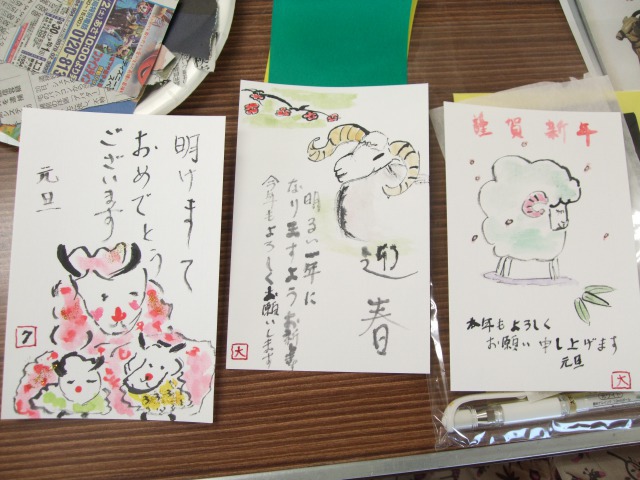 明けまして
おめでとう
ございます
元旦
ク
明るい一年に
なりますように
今年もよろしくお願いします
迎春
大
謹賀新年
本年もよろしく
お願い申し上げます
元旦
大
0120